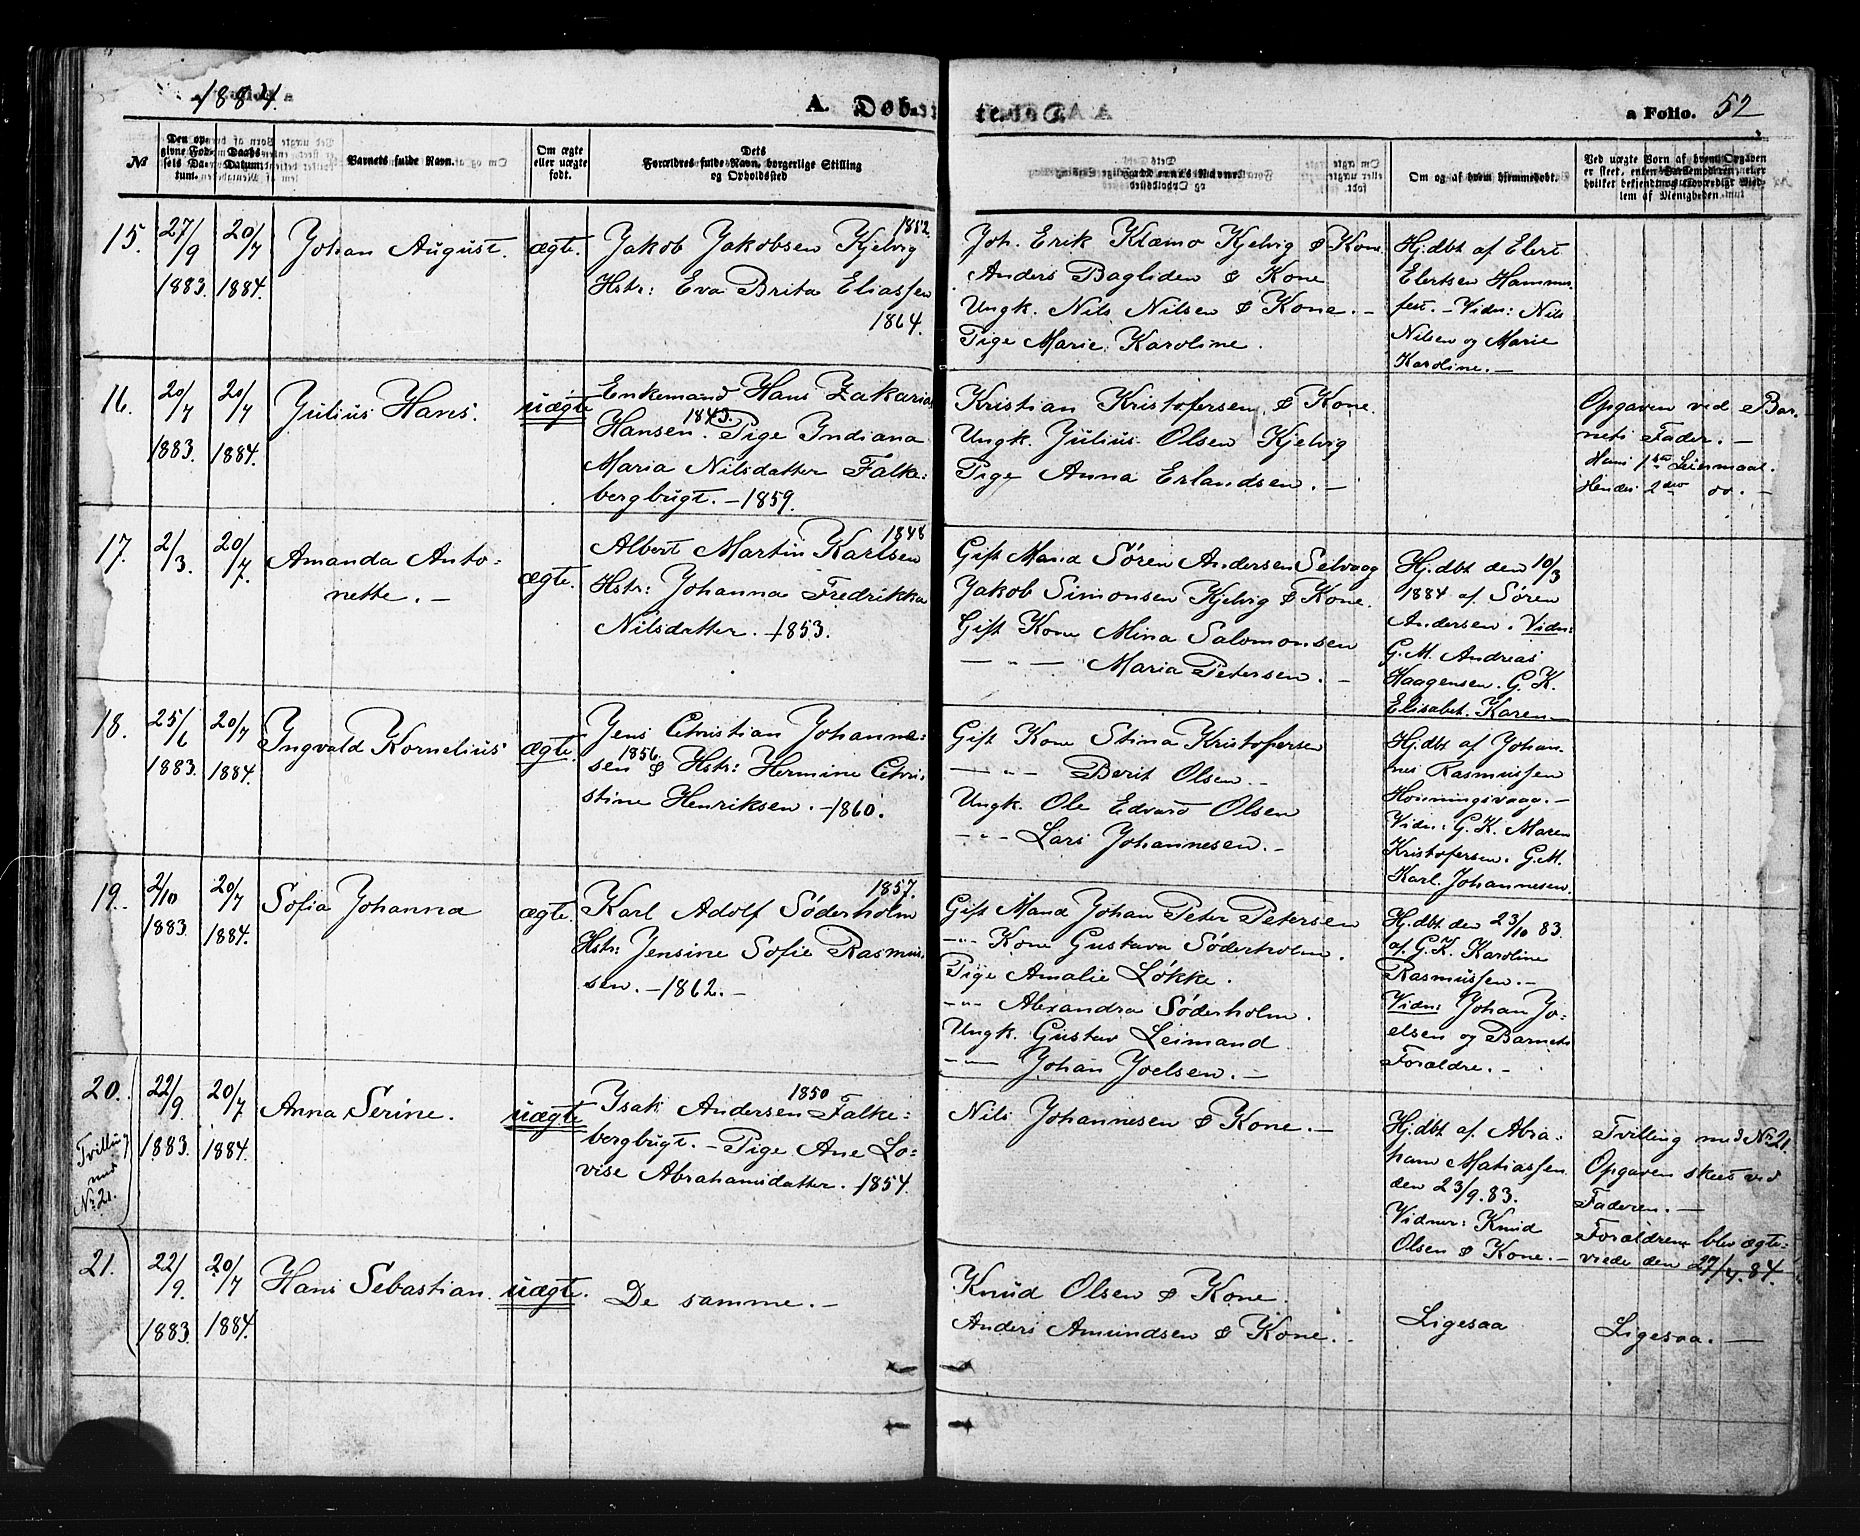 1884.
A. Døb-
te.
a Folio. 52
№
Den op-
givne Fød-
sels Da-
tum.
Daabs
Datum.
Barnets fulde Navn.
Om ægte
eller uægte
født.
Dets
Forældres fulde Navn, borgerlige Stilling
og Opholdssted
Om og af hvem hjemmedøbt.
Ved uægte Børn af hvem Opgaven
er skeet, enten Barnemoderen, eller
hvilket bekjendt og troværdigt Med-
lem af Menigheden
15.
27/9
1883.
20/7
1884.
Johan August.
ægte.
Jakob Jakobsen Kjelvig 1852.
Hstr: Eva Brita Eliassen
1864.
Joh. Erik Klæmo Kjelvig & Kone.
Anders Bagliden & Kone
Ungk. Nils Nilsen & Kone. -
Pige Marie Karoline.
Hj.dbt af Elert
Elertsen Hammer-
fest. - Vidn: Nils
Nilsen og Marie
Karoline. -
16.
20/7
1883.
20/7
1884.
Julius Hans.
uægte
Enkemand Hans Zakarias
Hansen. 1843. Pige Indiana
Maria Nilsdatter Falke-
bergbugt. - 1859.
Kristian Kristofersen & Kone.
Ungk. Julius Olsen Kjelvig
Pige Anna Erlandsen. -
Opgaven ved Bar-
nets Fader. -
Hans 1ste Leiermaal.
Hendes 2det do. -
17.
2/3
20/7
Amanda Anto-
nette. -
ægte.
1848
Albert Martin Karlsen
Hstr: Johanna Fredrikka
Nilsdatter. - 1853.
Gift Mand Søren Andersen Selvaag
Jakob Simonsen Kjelvig & Kone.
Gift Kone Mina Salomonsen
— " — Maria Petersen. -
Hj.dbt den 10/3
1884 af Søren
Andersen. Vidn:
G.M. Andreas
Haagensen. G.K.
Elisabet Karen -
18.
25/6
1883.
20/7
1884.
Ingvald Kornelius
ægte
Jens Christian Johanne-
sen 1856. & Hstr: Hermine Chri-
stine Henriksen. - 1860.
Gift Kone Stina Kristofersen
— " — Berit Olsen. -
Ungk. Ole Edvard Olsen
— " — Lars Johannesen. -
Hj.dbt af Johan-
nes Rasmussen
Honningsvaag. -
Vidn: G.K. Maren
Kristofersen. G.M.
Karl Johannesen.
19.
2/10
1883.
20/7
1884.
Sofia Johanna
ægte.
1857.
Karl Adolf Söderholm
Hstr: Jensine Sofie Rasmus-
sen. - 1862. -
Gift Mand Johan Peter Petersen
— " — Kone Gustava Söderholm.
Pige Amalie Løkke.
— " — Alexandra Söderholm.
Ungk. Gustav Leimand
— " — Johan Joelsen. -
Hj.dbt den 23/10 83.
af G.K. Karoline
Rasmussen. -
Vidn: Johan Jo-
elsen og Barnets
Forældre. -
20.
Tvilling
med
Nr. 21.
22/9
1883.
20/7
1884.
Anna Serine.
uægte
Isak Andersen 1850 Falke-
bergbugt. - Pige Ane Lo-
vise Abrahamsdatter. - 1854.
Nils Johannesen & Kone. -
Hj.dbt af Abra-
ham Matiassen
den 23/9. 83.
Vidner: Knud
Olsen & Kone. -
Tvilling med Nr. 21.
Opgaven skeet ved
Faderen. -
Forældrene blev ægte-
viede den 27/4. 84.
21.
22/9
1883.
20/7
1884.
Hans Sebastian.
uægte.
De samme. -
Knud Olsen & Kone.
Anders Amundsen & Kone. -
Ligesaa
Ligesaa. -